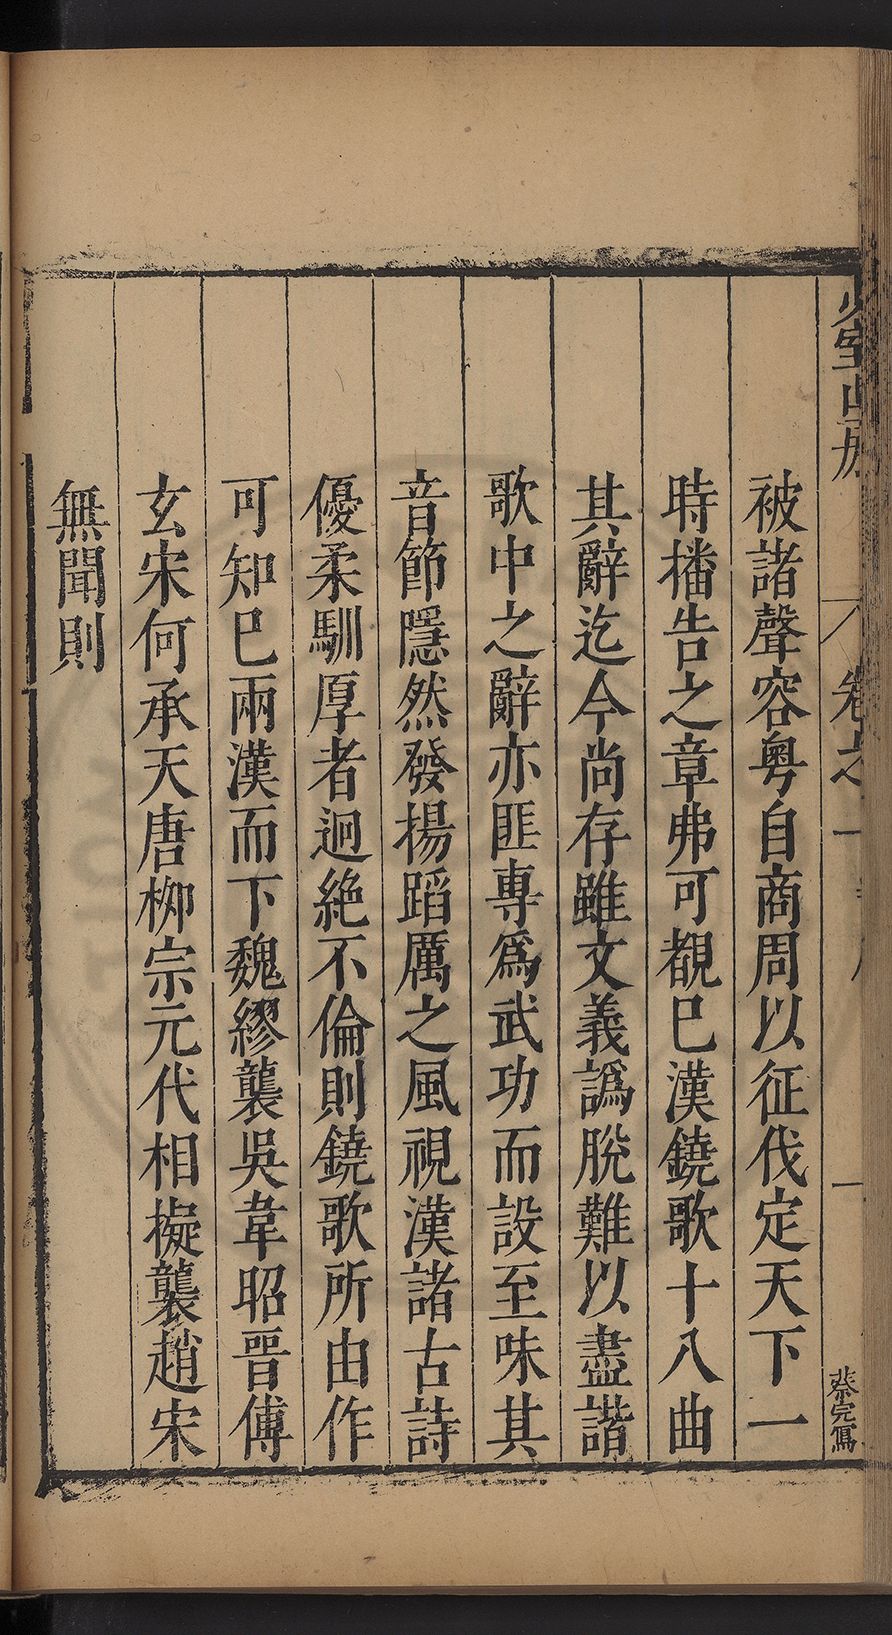 少室山房
卷之一
一
蔡完寫
被諸聲容粵自商周以征伐定天下一
時播告之章弗可覩巳漢鐃歌十八曲
其辭迄今尚存雖文義譌脫難以盡諧
歌中之辭亦匪專爲武功而設至味其
音節隱然發揚蹈厲之風視漢諸古詩
優柔馴厚者迥絶不倫則鐃歌所由作
可知巳兩漢而下魏繆襲吳韋昭晉傅
玄宋何承天唐柳宗元代相擬襲趙宋
無聞則